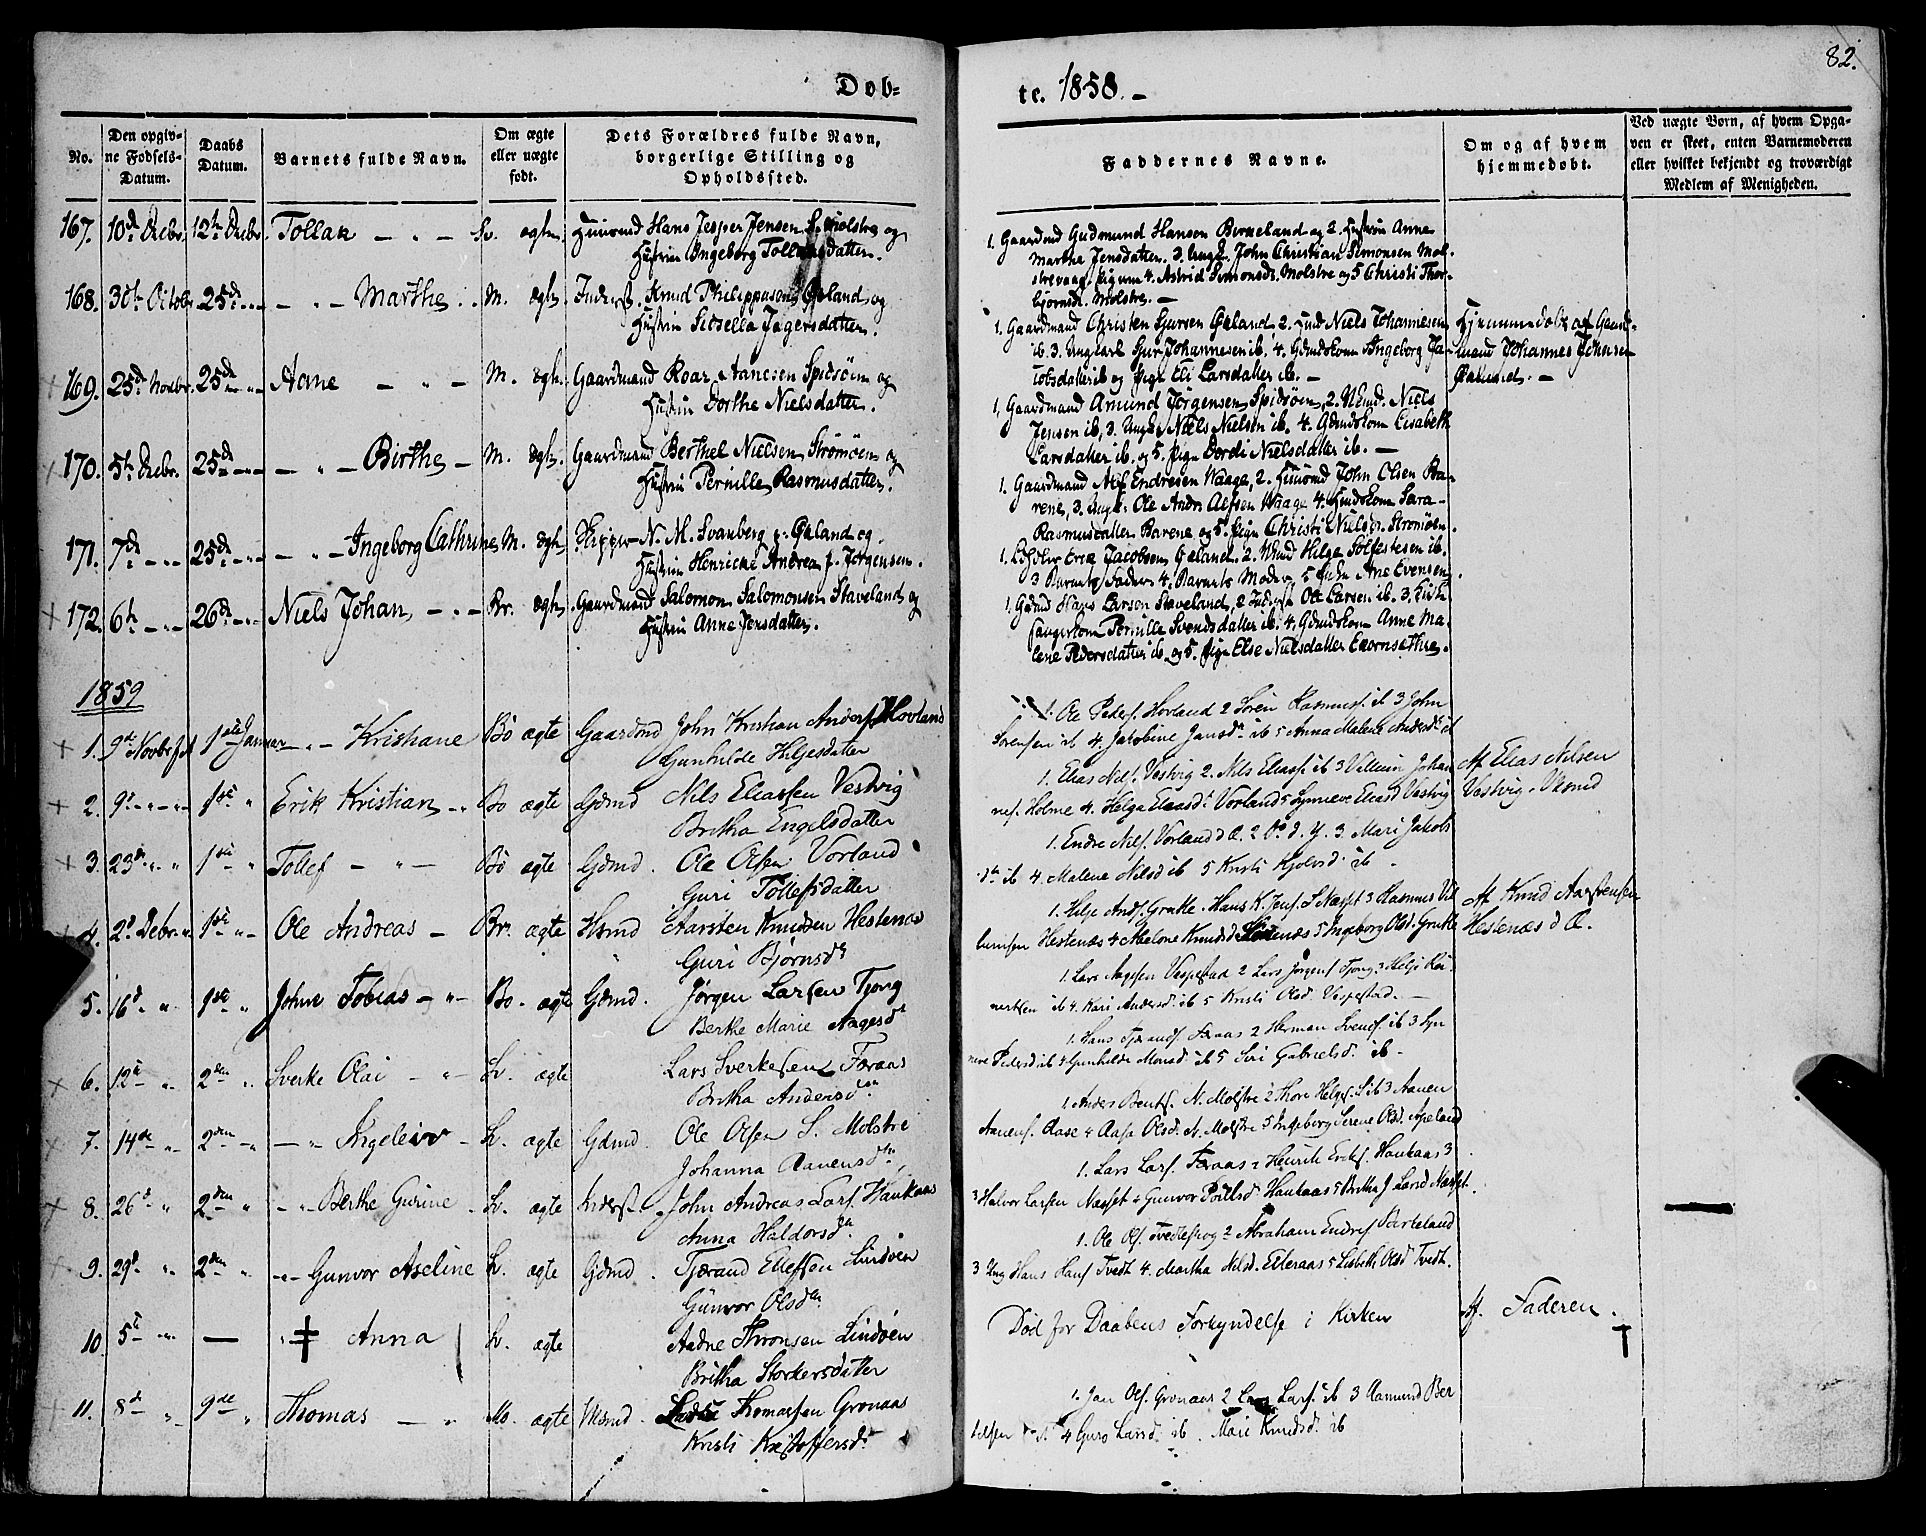 82.
Døb-
te. 1858. -
No.
Den opgiv-
ne Fødsels-
Datum.
Daabs
Datum.
Barnets fulde Navn.
Om ægte
eller uægte
født.
Dets Forældres fulde Navn,
borgerlige Stilling og
Opholdssted.
Faddernes Navne.
Om og af hvem
hjemmedøbt.
Ved uægte Børn, af hvem Opga-
ven er skeet, enten Barnemoderen
eller hvilket bekjendt og troværdigt
Medlem af Menigheden.
167. 10de Decbr. 12te Decbr. Tollak - " - Sv. ægte. Huusmd Hans Jesper Jensen S. Molstre og
Hustrue Ingeborg Tollagsdatter.
1. Gaardmd Gudmund Hansen Birkeland og 2. Hustrue Anne
Martha Jensdatter. 3. Ungk. John Christian Simonsen Mol-
strevaag, Pigerne 4. Astrid Simonsd. Molstre og 5 Christi Thor-
bjørnsd. Molstre. -
168. 30te Octobr 25de - " - Marthe M. ægte. Inderst. Knud Philippusen Øeland og
Hustrue Sitsella Jagersdatter.
1. Gaardmand Christen Sjursen Øeland 2. Huusmd Niels Johannesen
ib. 3. Ungkarl Sjur Johannesen ib. 4. Gdmdskone Ingeborg Ja-
cobsdatter ib og Pige Eli Larsdatter ib. -
Hjemmedøbt af Gaard-
mand Johannes Johnsen
Øeland. -
169. 25de Novbr. 25de - " - Arne - " - M. ægte. Gaardmand Roar Aanesen Spidsøen og
Hustrue Dorthe Nielsdatter.
1, Gaardmand Amund Jørgensen Spidsøen, 2. Niels
Jensen ib, 3. Ungk. Niels Nielsen ib. 4. Gdmdskone Elisabeth
Larsdatter ib. og 5. Pige Dordi Nielsdatter ib. -
170. 5te Decbr. 25de - " - Birthe - M. ægte. Gaardmand Berthel Nielsen Strømøen og
Hustrue Pernille Rasmusdatter.
1. Gaardmand Alf Endresen Waage, 2. Huusmd John Olsen Ba-
rene, 3. Ungk. Ole Andr. Alfsen Waage 4. Huusmdskone Sara
Rasmusdatter Barene og 5. Pige Christi Nielsen. Strømøen.
171. 7de - " - 25de - " - Ingeborg Cathrine M. ægte Skipper N. M. Svanberg p. Øeland og
Hustrue Henricke Andrea f. Jørgensen.
1. Eric Jacobsen Øeland. 2. Helge Solfestesen ib.
3 Barnets Fader 4. Barnets Moder 5 Ane Evensen.
172. 6te - " - 26de - " - Niels Johan - " - Br. ægte. Gaardmand Salomon Salomonsen Staveland og
Hustrue Anne Jensdatter.
1. Gdmd Hans Larsen Staveland, 2 Inderst Ole Larsen ib. 3. Kirke-
sangerkone Pernille Svendsdatter ib. 4. Gdmdskone Anne Ma-
lene Pedersdatter ib og 5. Pige Else Nielsdatter
1859
1. 9de Novbr 1ste Januar - " - Kristiane Bø ægte Gaardmd John Kristian Anders. Hovland
Gunhilde Helgesdatter
1. Ole Peders. Hovland 2 Søren Rasmus. ib 3 John
Sørensen ib 4. Jakobine Jansdr ib 5 Anna Malene Andersdr ib
2. 9de - " - 1ste " Erik Kristian - " Bø ægte Gdmd Nils Eliassen Vestvig
Britha Engelsdatter
1. Elias Nils. Vestvig 2. Nils Elias. ib 3 Villum Johan-
nes. Holme 4. Helga Eliasdr Vorland 5 Synneve Eliasd Vestvig
Af Elias Nilsen
Vestvig.
3. 23de " " 1ste " Tollef - " - Bø ægte Gdmd. Ole Olsen Vorland
Guri Tollefsdatter
1. Endre Nils. Vorland d Æ. 2 d. Y. 3. Mari Jakobs-
dr ib 4. Malene Nilsd ib 5 Kristi ib -
4. 2de Debr. 1ste " - Ole Andreas - Br. ægte Hsmd Aarsten Knudsen Hestenæs
Guri Bjørnsdr
1. Helje Ands. Grutle Hans K. Jens. S Næsset 3 Rasmus Vil-
lumsen Hestenæs 4 Knudsd Hestenæs 5 Ingeborg Olsd. Grutle
Af Knud Aarstensen
Hestenæs d Æ.
5. 16de " 1ste " Johne Tobias - " - Bø. ægte Gdmd. Jørgen Larsen Tjong
Berthe Marie Aagesdr
1. Lars Aagesen Vespestad 2 Lars Jørgens. Tjong 3 Helje Rei-
nertsen ib 4. Kari Andersd. ib 5 Kristi Olsd. Vespestad. -
6. 12te " 2den " Sverke Olai - " - Sv. ægte Lars Sverkesen Føraas
Britha Andersdtr
1. Hans Føraas 2 Herman Svends. ib 3 Syn-
neve Pedersd ib 4 Gunhilde Monsd. ib 5 Siri Gabrielsd. ib -
7. 14de " 2den " - " Ingeleiv - Sv. ægte Gdmd. Ole Olsen S. Molstre
Johanna Aanensdtr,
1. Anders Bents. N. Molstre 2 Thore Helges. S ib 3 Aanen
Aanens. Aase 4 Aasa Olsd. N. Molstre 5 Ingeborg Serene Olsd. Apeland
8. 26de " 2den " - " Berthe Gurine Sv. ægte Inderst John Andreas Lars. Haukaas
Anna Haldorsdr
1. Lars Lars. Føraas 2 Henrik Eriks. Haukaas 3
3 Halvor Larsen Næsset 4 Gunvor Poulsd. Haukaas 5 Britha J Larsd Næsset.
9. 29de " 2den " - " Gunvor Aseline Sv. ægte Gdmd. Tjærand Ellefsen Lindøen
Gunvor Olsdtr.
1. Ole Ols. Tvedteskog 2 Abraham Endres. Børteland
3 Ung Hans Hans Tvedt 4. Martha Nilsd. Elleraas 5 Lisbeth Olsd Tvedt.
10. 5te " - " ‡ Anna Sv. ægte Aadne Thronsen Lindøen
Britha Storkersdatter
Død før Daabens Forkyndelse i Kirken
Af Faderen. †
11. 8de " 9de " Thomas - " Mo. ægte Thomassen Gronaas
Kristi Kristoffersdr
1. Jan Ols. Gronaas 2 Lars Lars. ib 3 Aamund Ber-
telsen 4 Guro Larsd. ib. Mari Knudsd. ib